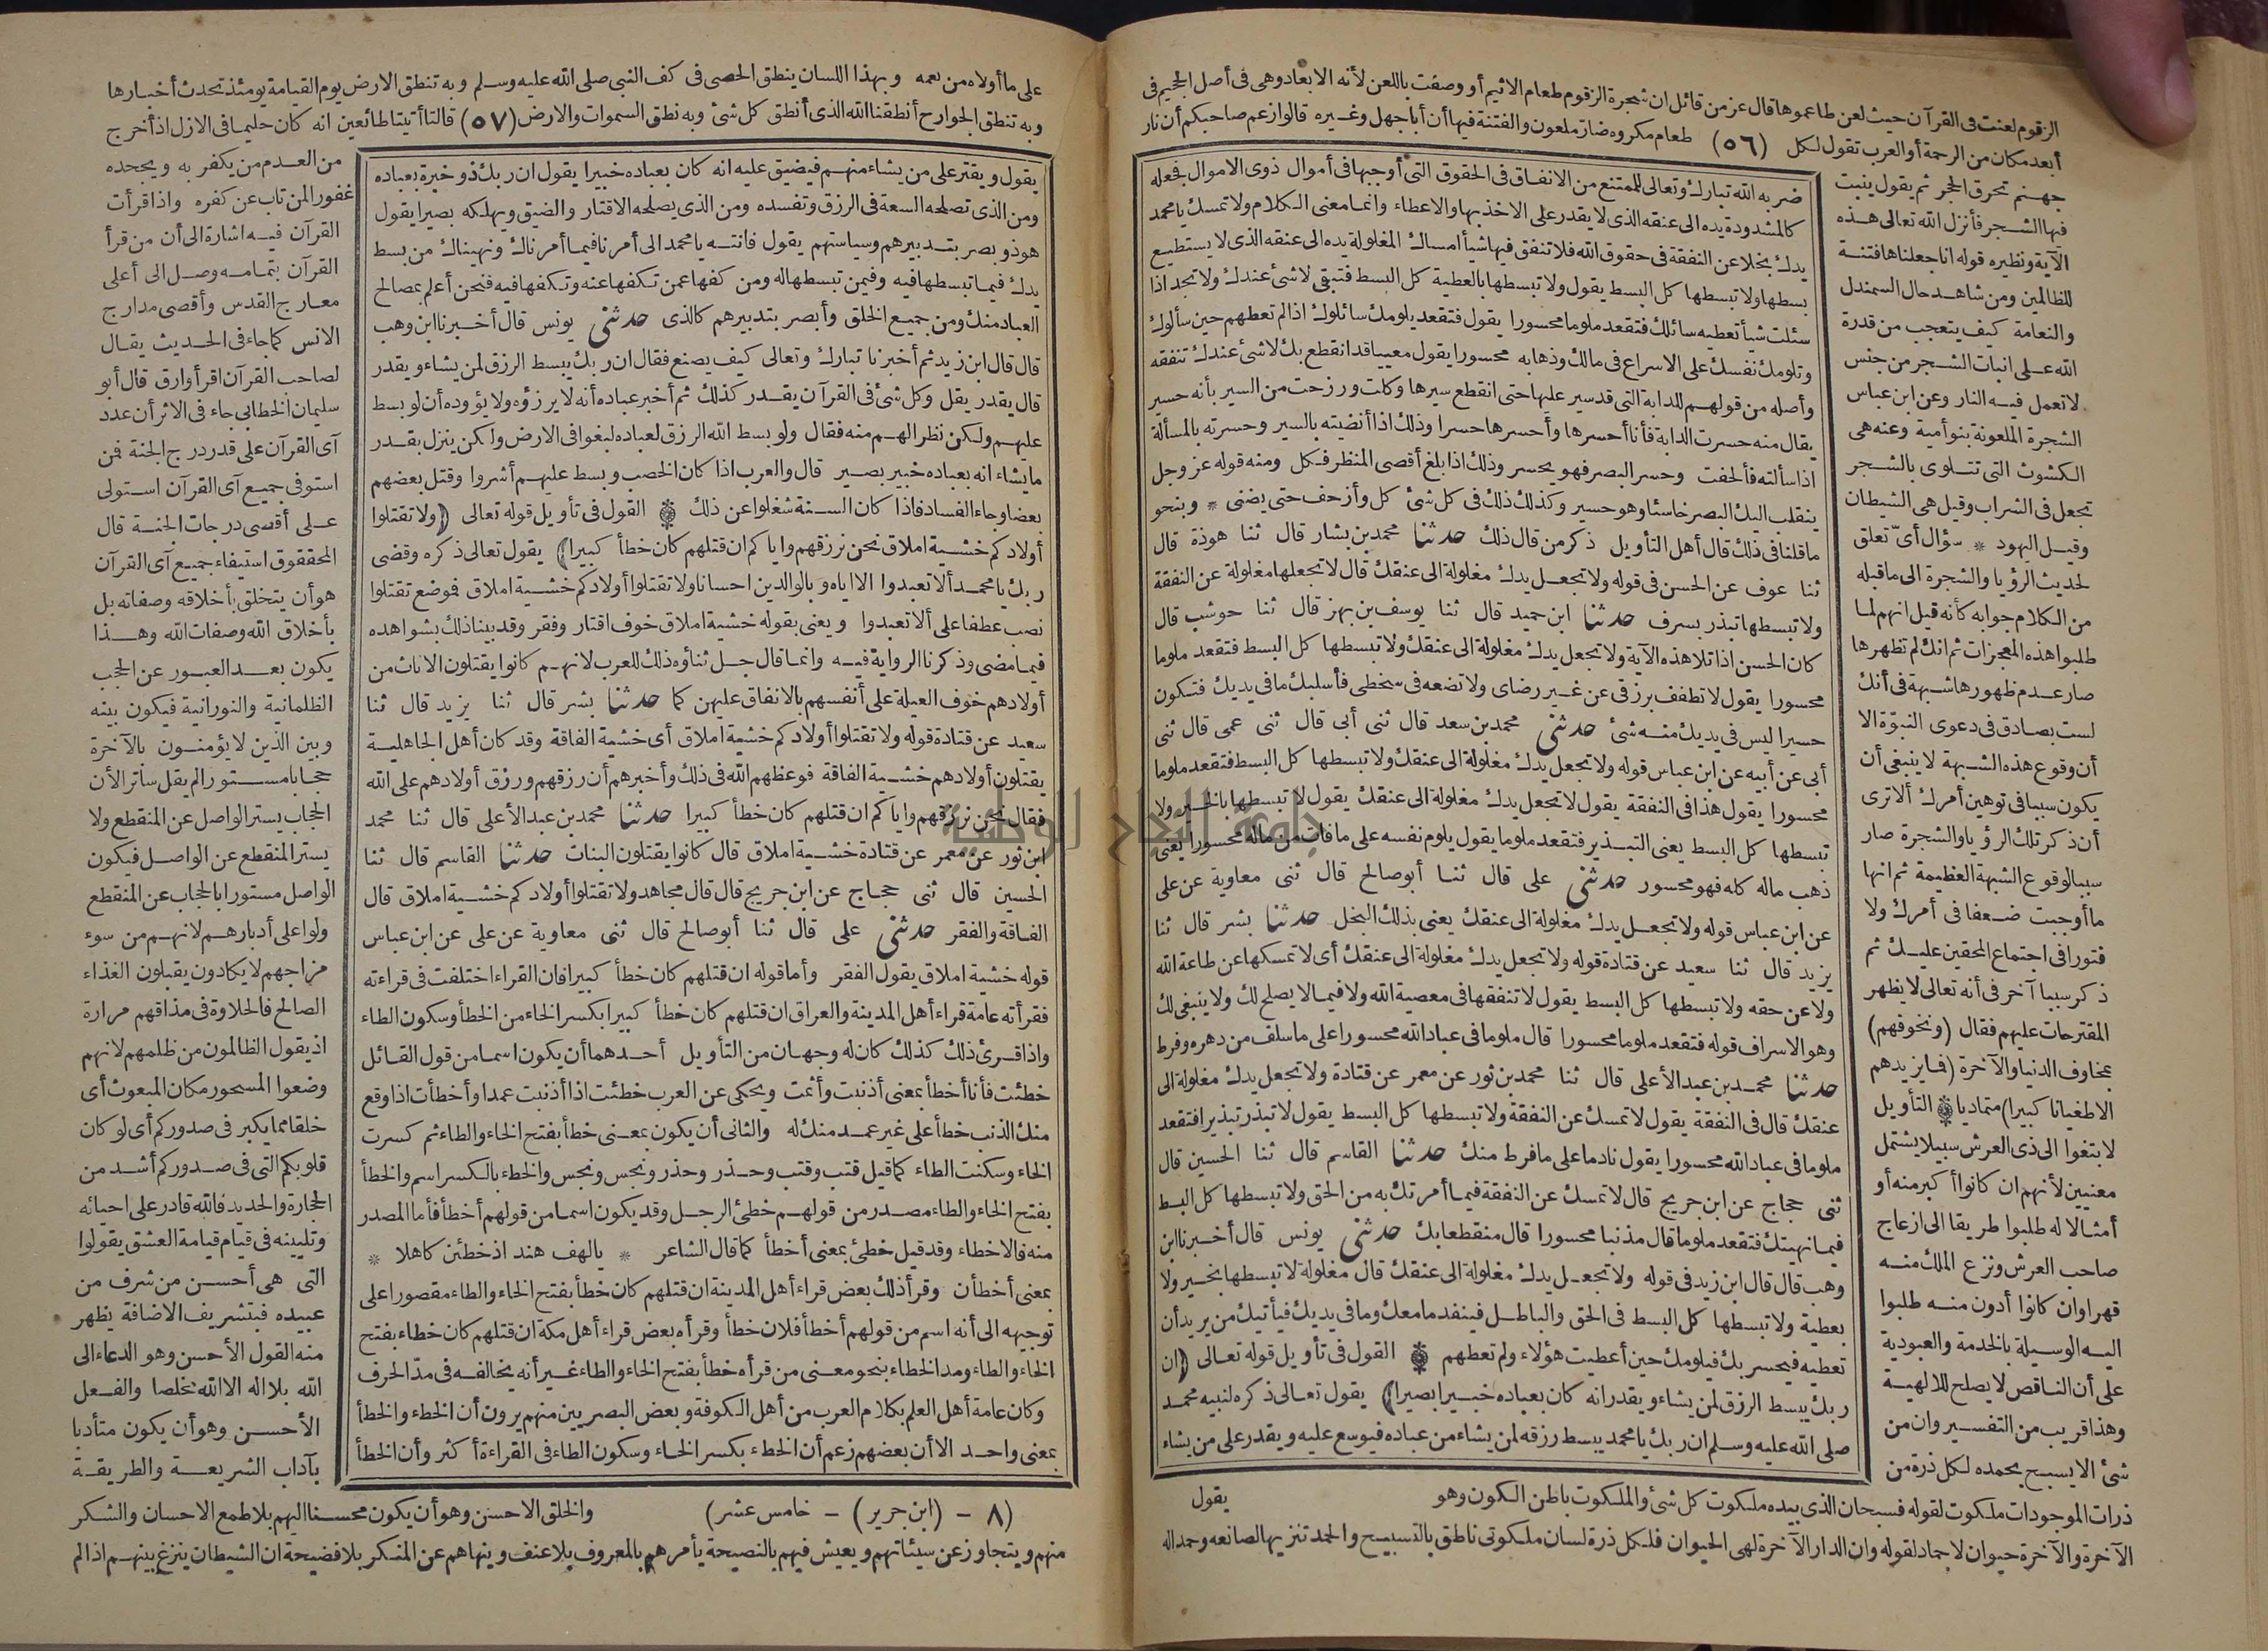 الزقوم لعنت فى القرآن حيث لعن طاعموها قال عز من قائل ان شجرة الزقوم طعام الاثيم أو وصفت باللعن لأنه الابعاد وهى فى أصل الجحيم فى
أبعد مكان من الرحمة أو العرب تقول لكل (٥٦) طعام مكروه ضار ملعون والفتنة فيها أن أبا جهل وغيره قالوا زعم صاحبكم أن نار
جهنم تحرق الحجر ثم يقول ينبت
فيها الشجر فأنزل الله تعالى هذه
الآية ونظيره قوله انا جعلناها فتنة
للظالمين ومن شاهد حال السمندل
والنعامة كيف يتعجب من قدرة
الله على انبات الشجر من جنس
لا تعمل فيه النار وعن ابن عباس
الشجرة الملعونة بنو أمية وعنه هى
الكشوث التى تتلوى بالشجر
تجعل فى الشراب وقيل هى الشيطان
وقيل اليهود * سؤال أىّ تعلق
لحديث الرؤيا والشجرة الى ما قبله
من الكلام جوابه كأنه قيل انهم لما
طلبوا هذه المعجزات ثم انك لم تظهرها
صار عدم ظهورها شبهة فى أنك
لست بصادق فى دعوى النبوّة الا
أن وقوع هذه الشبهة لا ينبغى أن
يكون سببا فى توهين أمرك ألا ترى
أن ذكر تلك الرؤيا والشجرة صار
سببا لوقوع الشبهة العظيمة ثم انها
ما أوجبت ضعفا فى أمرك ولا
فتورا فى اجتماع المحقين عليك ثم
ذكر سببا آخر فى أنه تعالى لا يظهر
المقترحات عليهم فقال (ونخوفهم)
بمخاوف الدنيا والآخرة (فما يزيدهم
الا طغيانا كبيرا) متماديا * التأويل
لابتغوا الى ذى العرش سبيلا يشتمل
معنيين لأنهم ان كانوا أكبر منه أو
أمثالا له طلبوا طريقا الى ازعاج
صاحب العرش ونزع الملك منه
قهرا وان كانوا أدون منه طلبوا
اليه الوسيلة بالخدمة والعبودية
على أن الناقص لا يصلح للالهية
وهذا قريب من التفسير وان من
شئ الا يسبح بحمده لكل ذرة من
ضربه الله تبارك وتعالى للممتنع من الانفاق فى الحقوق التى أوجبها فى أموال ذوى الاموال فجعله
كالمشدودة يده الى عنقه الذى لا يقدر على الاخذ بها والاعطاء وانما معنى الكلام ولا تمسك يا محمد
يدك بخلا عن النفقة فى حقوق الله فلا تنفق فيها شيأ امساك المغلولة يده الى عنقه الذى لا يستطيع
بسطها ولا تبسطها كل البسط يقول ولا تبسطها بالعطية كل البسط فتبقى لا شئ عندك ولا تجد اذا
سئلت شيأ تعطيه سائلك فتقعد ملوما محسورا يقول فتقعد يلومك سائلوك اذا لم تعطهم حين سألوك
وتلومك نفسك على الاسراع فى مالك وذهابه محسورا يقول معيبا قد انقطع بك لا شئ عندك تنفقه
وأصله من قولهم للدابة التى قد سير عليها حتى انقطع سيرها وكلت ورزحت من السير بأنه حسير
يقال منه حسرت الدابة فأنا أحسرها وأحسرها حسرا وذلك اذا أنضيته بالسير وحسرته بالمسألة
اذا سألته فألحفت وحسر البصر فهو يحسر وذلك اذا بلغ أقصى المنظر فكل ومنه قوله عز وجل
ينقلب اليك البصر خاسئا وهو حسير وكذلك ذلك فى كل شئ كل وأزحف حتى يضنى * وبنحو
ما قلنا فى ذلك قال أهل التأويل ذكر من قال ذلك حدثنا محمد بن بشار قال ثنا هوذة قال
ثنا عوف عن الحسن فى قوله ولا تجعل يدك مغلولة الى عنقك قال لا تجعلها مغلولة عن النفقة
ولا تبسطها تبذر بسرف حدثنا ابن حميد قال ثنا يوسف بن بهز قال ثنا حوشب قال
كان الحسن اذا تلا هذه الآية ولا تجعل يدك مغلولة الى عنقك ولا تبسطها كل البسط فتقعد ملوما
محسورا يقول لا تطفف برزقى عن غير رضاى ولا تضعه فى سخطى فأسلبك ما فى يديك فتكون
حسيرا ليس فى يديك منه شئ حدثنى محمد بن سعد قال ثنى أبى قال ثنى عمى قال ثنى
أبى عن أبيه عن ابن عباس قوله ولا تجعل يدك مغلولة الى عنقك ولا تبسطها كل البسط فتقعد ملوما
محسورا يقول هذا فى النفقة يقول لا تجعل يدك مغلولة الى عنقك يقول لا تبسطها بالخير ولا
تبسطها كل البسط يعنى التبذير فتقعد ملوما يقول يلوم نفسه على ما فات من ماله محسورا يعنى
ذهب ماله كله فهو محسور حدثنى على قال ثنا أبو صالح قال ثنى معاوية عن على
عن ابن عباس قوله ولا تجعل يدك مغلولة الى عنقك يعنى بذلك البخل حدثنا بشر قال ثنا
يزيد قال ثنا سعيد عن قتادة قوله ولا تجعل يدك مغلولة الى عنقك أى لا تمسكها عن طاعة الله
ولا عن حقه ولا تبسطها كل البسط يقول لا تنفقها فى معصية الله ولا فيما لا يصلح لك ولا ينبغى لك
وهو الاسراف قوله فتقعد ملوما محسورا قال ملوما فى عباد الله محسورا على ما سلف من دهره وفرط
حدثنا محمد بن عبد الأعلى قال ثنا محمد بن ثور عن معمر عن قتادة ولا تجعل يدك مغلولة الى
عنقك قال فى النفقة يقول لا تمسك عن النفقة ولا تبسطها كل البسط يقول لا تبذر تبذيرا فتقعد
ملوما فى عباد الله محسورا يقول نادما على ما فرط منك حدثنا القاسم قال ثنا الحسين قال
ثنى حجاج عن ابن جريج قال لا تمسك عن النفقة فيما أمرتك به من الحق ولا تبسطها كل البسط
فيما نهيتك فتقعد ملوما قال مذنبا محسورا قال منقطعا بك حدثنى يونس قال أخبرنا ابن
وهب قال قال ابن زيد فى قوله ولا تجعل يدك مغلولة الى عنقك قال مغلولة لا تبسطها بخير ولا
بعطية ولا تبسطها كل البسط فى الحق والباطل فينفد ما معك وما فى يديك فيأتيك من يريد أن
تعطيه فيحسر بك فيلومك حين أعطيت هؤلاء ولم تعطهم * القول فى تأويل قوله تعالى (ان
ربك يبسط الرزق لمن يشاء ويقدر انه كان بعباده خبيرا بصيرا) يقول تعالى ذكره لنبيه محمد
صلى الله عليه وسلم ان ربك يا محمد يبسط رزقه لمن يشاء من عباده فيوسع عليه ويقدر على من يشاء
يقول
ذرات الموجودات ملكوت لقوله فسبحان الذى بيده ملكوت كل شئ والملكوت باطن الكون وهو
الآخرة والآخرة حيوان لا جماد لقوله وان الدار الآخرة لهى الحيوان فلكل ذرة لسان ملكوتى ناطق بالتسبيح والحمد تنزيها لصانعه وحمدا له
على ما أولاه من نعمه وبهذا اللسان ينطق الحصى فى كف النبى صلى الله عليه وسلم وبه تنطق الارض يوم القيامة يومئذ تحدث أخبارها
وبه تنطق الجوارح أنطقنا الله الذى أنطق كل شئ وبه نطق السموات والارض (٥٧) قالتا أتينا طائعين انه كان حليما فى الازل اذ أخرج
من العدم من يكفر به ويجحده
غفورا لمن تاب عن كفره واذا قرأت
القرآن فيه اشارة الى أن من قرأ
القرآن بتمامه وصل الى أعلى
معارج القدس وأقصى مدارج
الانس كما جاء فى الحديث يقال
لصاحب القرآن اقرأ وارق قال أبو
سليمان الخطابى جاء فى الاثر أن عدد
آى القرآن على قدر درج الجنة فمن
استوفى جميع آى القرآن استولى
على أقصى درجات الجنة قال
المحققوق استيفاء جميع آى القرآن
هو أن يتخلق بأخلاقه وصفاته بل
بأخلاق الله وصفات الله وهذا
يكون بعد العبور عن الحجب
الظلمانية والنورانية فيكون بينه
وبين الذين لا يؤمنون بالآخرة
حجابا مستورا لم يقل ساتر الأن
الحجاب يستر الواصل عن المنقطع ولا
يستر المنقطع عن الواصل فيكون
الواصل مستورا بالحجاب عن المنقطع
ولوا على أدبارهم لانهم من سوء
مزاجهم لا يكادون يقبلون الغذاء
الصالح فالحلاوة فى مذاقهم مرارة
اذ يقول الظالمون من ظلمهم لانهم
وضعوا المسحور مكان المبعوث أى
خلقا مما يكبر فى صدوركم أى لو كان
قلوبكم التى فى صدوركم أشد من
الحجارة والحديد فالله قادر على احيائه
وتليينه فى قيام قيامة العشق يقولوا
التى هى أحسن من شرف من
عبيده فبتشريف الاضافة يظهر
منه القول الأحسن وهو الدعاء الى
الله بلا اله الا الله مخلصا والفعل
الأحسن وهو أن يكون متأدبا
بآداب الشريعة والطريقة
يقول ويقتر على من يشاء منهم فيضيق عليه انه كان بعباده خبيرا يقول ان ربك ذو خبرة بعباده
ومن الذى تصلحه السعة فى الرزق وتفسده ومن الذى يصلحه الاقتار والضيق ويهلكه بصيرا يقول
هو ذو بصر بتدبيرهم وسياستهم يقول فانته يا محمد الى أمرنا فيما أمرناك ونهيناك من بسط
يدك فيما تبسطها فيه وفيمن تبسطها له ومن كفها عمن تكفها عنه وتكفها فيه فنحن أعلم بمصالح
العباد منك ومن جميع الخلق وأبصر بتدبيرهم كالذى حدثنى يونس قال أخبرنا ابن وهب
قال قال ابن زيد ثم أخبرنا تبارك وتعالى كيف يصنع فقال ان ربك يبسط الرزق لمن يشاء ويقدر
قال يقدر يقل وكل شئ فى القرآن يقدر كذلك ثم أخبر عباده أنه لا يرزؤه ولا يؤوده أن لو بسط
عليهم ولكن نظر الهم منه فقال ولو بسط الله الرزق لعباده لبغوا فى الارض ولكن ينزل بقدر
ما يشاء انه بعباده خبير بصير قال والعرب اذا كان الخصب وبسط عليهم أشروا وقتل بعضهم
بعضا وجاء الفساد فاذا كان السنة شغلوا عن ذلك * القول فى تأويل قوله تعالى (ولا تقتلوا
أولادكم خشية املاق نحن نرزقهم واياكم ان قتلهم كان خطأ كبيرا) يقول تعالى ذكره وقضى
ربك يا محمد ألا تعبدوا الا اياه وبالوالدين احسانا ولا تقتلوا أولادكم خشية املاق فموضع تقتلوا
نصب عطفا على ألا تعبدوا ويعنى بقوله خشية املاق خوف اقتار وفقر وقد بينا ذلك بشواهده
فيما مضى وذكرنا الرواية فيه وانما قال جل ثناؤه ذلك للعرب لانهم كانوا يقتلون الاناث من
أولادهم خوف العيلة على أنفسهم بالانفاق عليهن كما حدثنا بشر قال ثنا يزيد قال ثنا
سعيد عن قتادة قوله ولا تقتلوا أولادكم خشية املاق أى خشية الفاقة وقد كان أهل الجاهلية
يقتلون أولادهم خشية الفاقة فوعظهم الله فى ذلك وأخبرهم أن رزقهم ورزق أولادهم على الله
فقال نحن نرزقهم واياكم ان قتلهم كان خطأ كبيرا حدثنا محمد بن عبد الأعلى قال ثنا محمد
ابن ثور عن معمر عن قتادة خشية املاق قال كانوا يقتلون البنات حدثنا القاسم قال ثنا
الحسين قال ثنى حجاج عن ابن جريج قال قال مجاهد ولا تقتلوا أولادكم خشية املاق قال
الفاقة والفقر حدثنى على قال ثنا أبو صالح قال ثنى معاوية عن على عن ابن عباس
قوله خشية املاق يقول الفقر وأما قوله ان قتلهم كان خطأ كبيرا فان القراء اختلفت فى قراءته
فقرأته عامة قراء أهل المدينة والعراق ان قتلهم كان خطأ كبيرا بكسر الخاء من الخطأ وسكون الطاء
واذا قرئ ذلك كذلك كان له وجهان من التأويل أحدهما أن يكون اسما من قول القائل
خطئت فأنا أخطأ بمعنى أذنبت وأثمت ويحكى عن العرب خطئت اذا أذنبت عمدا وأخطأت اذا وقع
منك الذنب خطأ على غير عمد منك له والثانى أن يكون بمعنى خطأ بفتح الخاء والطاء ثم كسرت
الخاء وسكنت الطاء كما قيل قتب وقتب وحذر وحذر ونجس ونجس والخطء بالكسر اسم والخطأ
بفتح الخاء والطاء مصدر من قولهم خطئ الرجل وقد يكون اسما من قولهم أخطأ فأما المصدر
منه فالاخطاء وقد قيل خطئ بمعنى أخطأ كما قال الشاعر * يالهف هند اذ خطئن كاهلا *
بمعنى أخطأن وقرأ ذلك بعض قراء أهل المدينة ان قتلهم كان خطأ بفتح الخاء والطاء مقصورا على
توجيهه الى أنه اسم من قولهم أخطأ فلان خطأ وقرأه بعض قراء أهل مكة ان قتلهم كان خطاء بفتح
الخاء والطاء ومد الخطاء بنحو معنى من قرأه خطأ بفتح الخاء والطاء غير أنه يخالفه فى مدّ الحرف
وكان عامة أهل العلم بكلام العرب من أهل الكوفة وبعض البصريين منهم يرون أن الخطء والخطأ
بمعنى واحد الا أن بعضهم زعم أن الخطء بكسر الخاء وسكون الطاء فى القراءة أكثر وأن الخطأ
(٨ - (ابن جرير) - خامس عشر) والخلق الاحسن وهو أن يكون محسنا اليهم بلا طمع الاحسان والشكر
منهم ويتجاوز عن سيئاتهم ويعيش فيهم بالنصيحة يأمرهم بالمعروف بلا عنف وينهاهم عن المنكر بلا فضيحة ان الشيطان ينزغ بينهم اذا لم
جامعة النجاح الوطنية